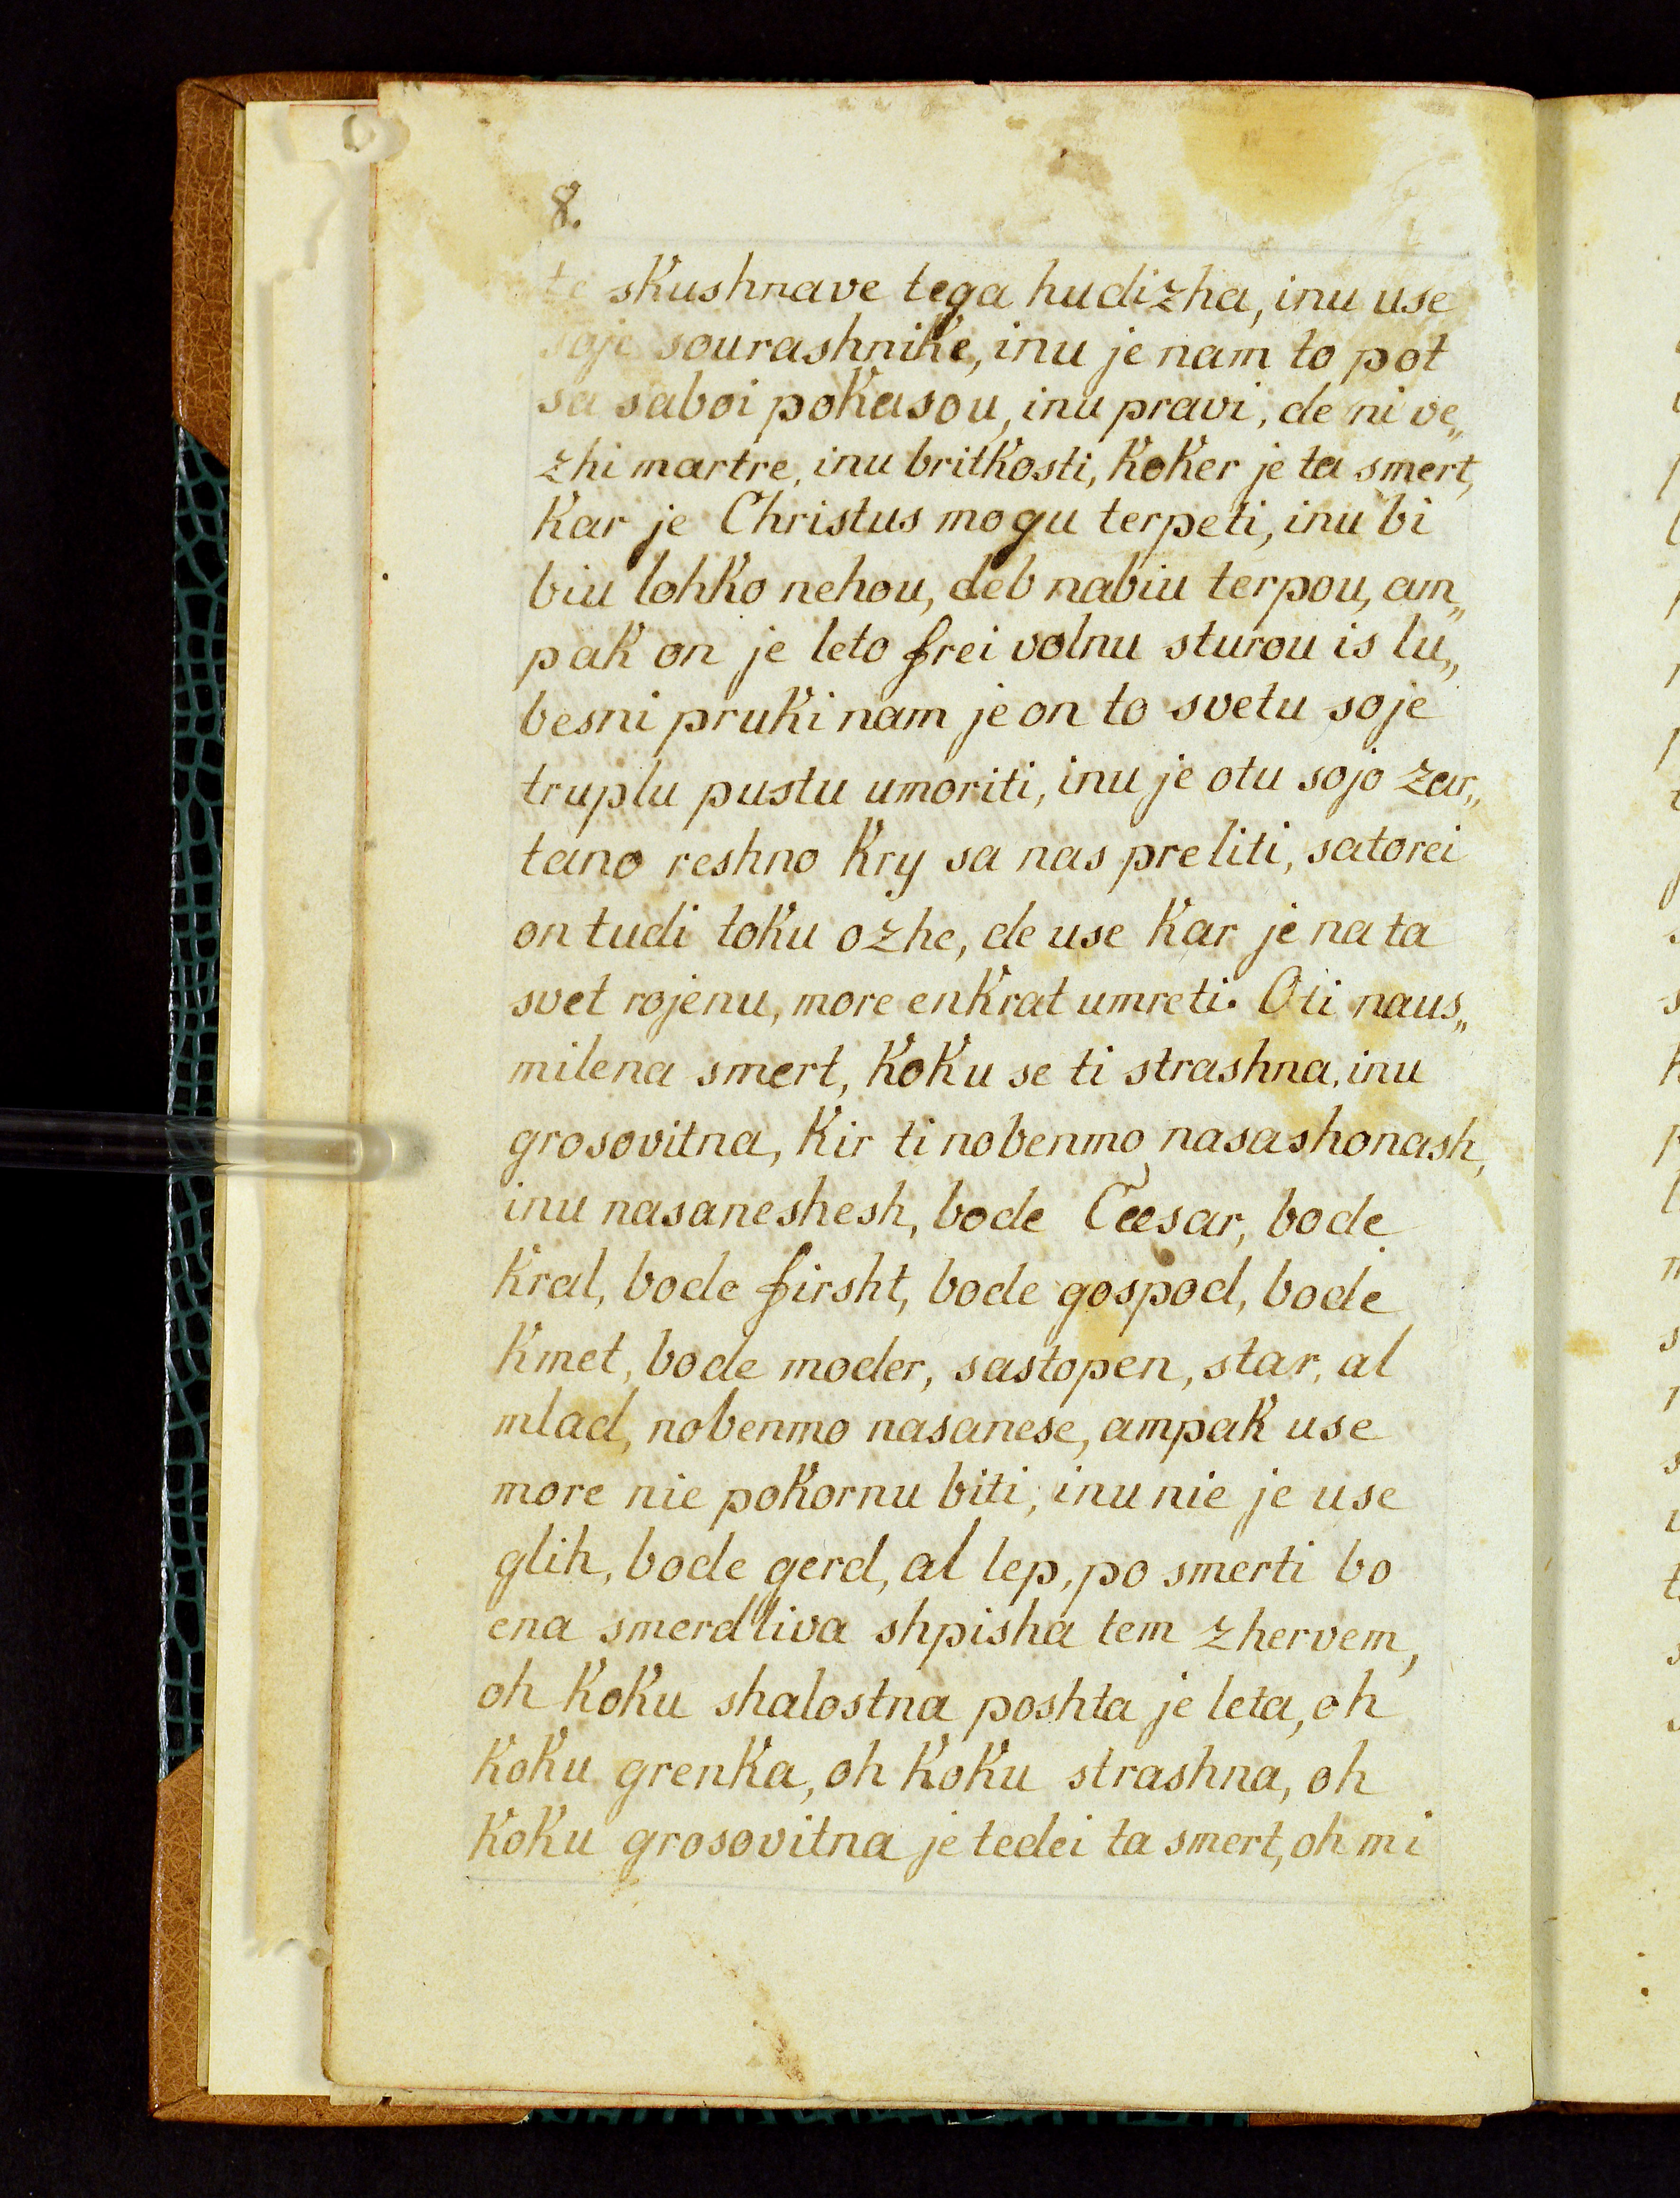 8.
te skushnave tega hudizha, inu use
soje sourashnike, inu je nam to pot
sa saboi pokasou, inu pravi, de ni ve„
zhi martre, inu britkosti, koker je ta smert,
kar je Christus mogu terpeti, inu bi
biu lohko nehou, deb nabiu terpou, am„
pak on je leto frei volnu sturou is lu„
besni pruki nam je on to svetu soje
truplu pustu umoriti, inu je otu sojo zar„
tano reshno kry sa nas preliti, satorei
on tudi toku ozhe, de use kar je na ta
svet rojenu, more enkrat umreti. O ti naus„
milena smert, koku se ti strashna, inu
grosovitna, kir ti nobenmo nasashonash,
inu nasaneshesh, bode Cæsar, bode
kral, bode firsht, bode gospod, bode
kmet, bode moder, sastopen, star, al
mlad, nobenmo nasanese, ampak use
more nie pokornu biti, inu nie je use
glih, bode gerd, al lep, po smerti bo
ena smerdliva shpisha tem zhervem,
oh koku shalostna poshta je leta, oh
koku grenka, oh koku strashna, oh
koku grosovitna je tedei ta smert, oh mi